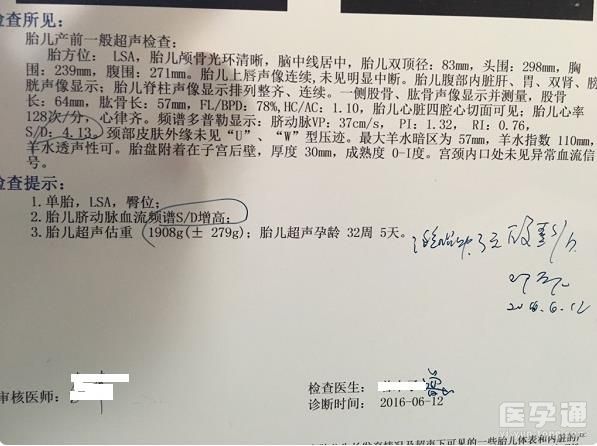 检查所见:
胎儿产前一般超声检查:
胎方位: LSA, 胎儿颅骨光环清晰, 脑中线居中, 胎儿双顶径: 83mm, 头围: 298mm, 胸
围: 239mm, 腹围: 271mm。胎儿上唇声像连续, 未见明显中断。胎儿腹部内脏肝、胃、双肾、膀
胱声像显示; 胎儿脊柱声像显示排列整齐、连续。一侧股骨、肱骨声像显示并测量, 股骨
长: 64mm, 肱骨长: 57mm, FL/BPD: 78%, HC/AC: 1.10, 胎儿心脏四腔心切面可见; 胎儿心率
128次/分, 心律齐。频谱多普勒显示: 脐动脉VP: 37cm/s, PI: 1.32, RI: 0.76,
S/D: 4.13。颈部皮肤外缘未见"U"、"W"型压迹。最大羊水暗区为 57mm, 羊水指数 110mm,
羊水透声性可。胎盘附着在子宫后壁, 厚度 30mm, 成熟度 0-I度。宫颈内口处未见异常血流信
号。
检查提示:
1. 单胎, LSA, 臀位;
2. 胎儿脐动脉血流频谱S/D增高;
3. 胎儿超声估重 1908g(± 279g); 胎儿超声孕龄 32周 5天。
S/D
2016.6.12
审核医师:
检查医生:
诊断时间: 2016-06-12
医孕通